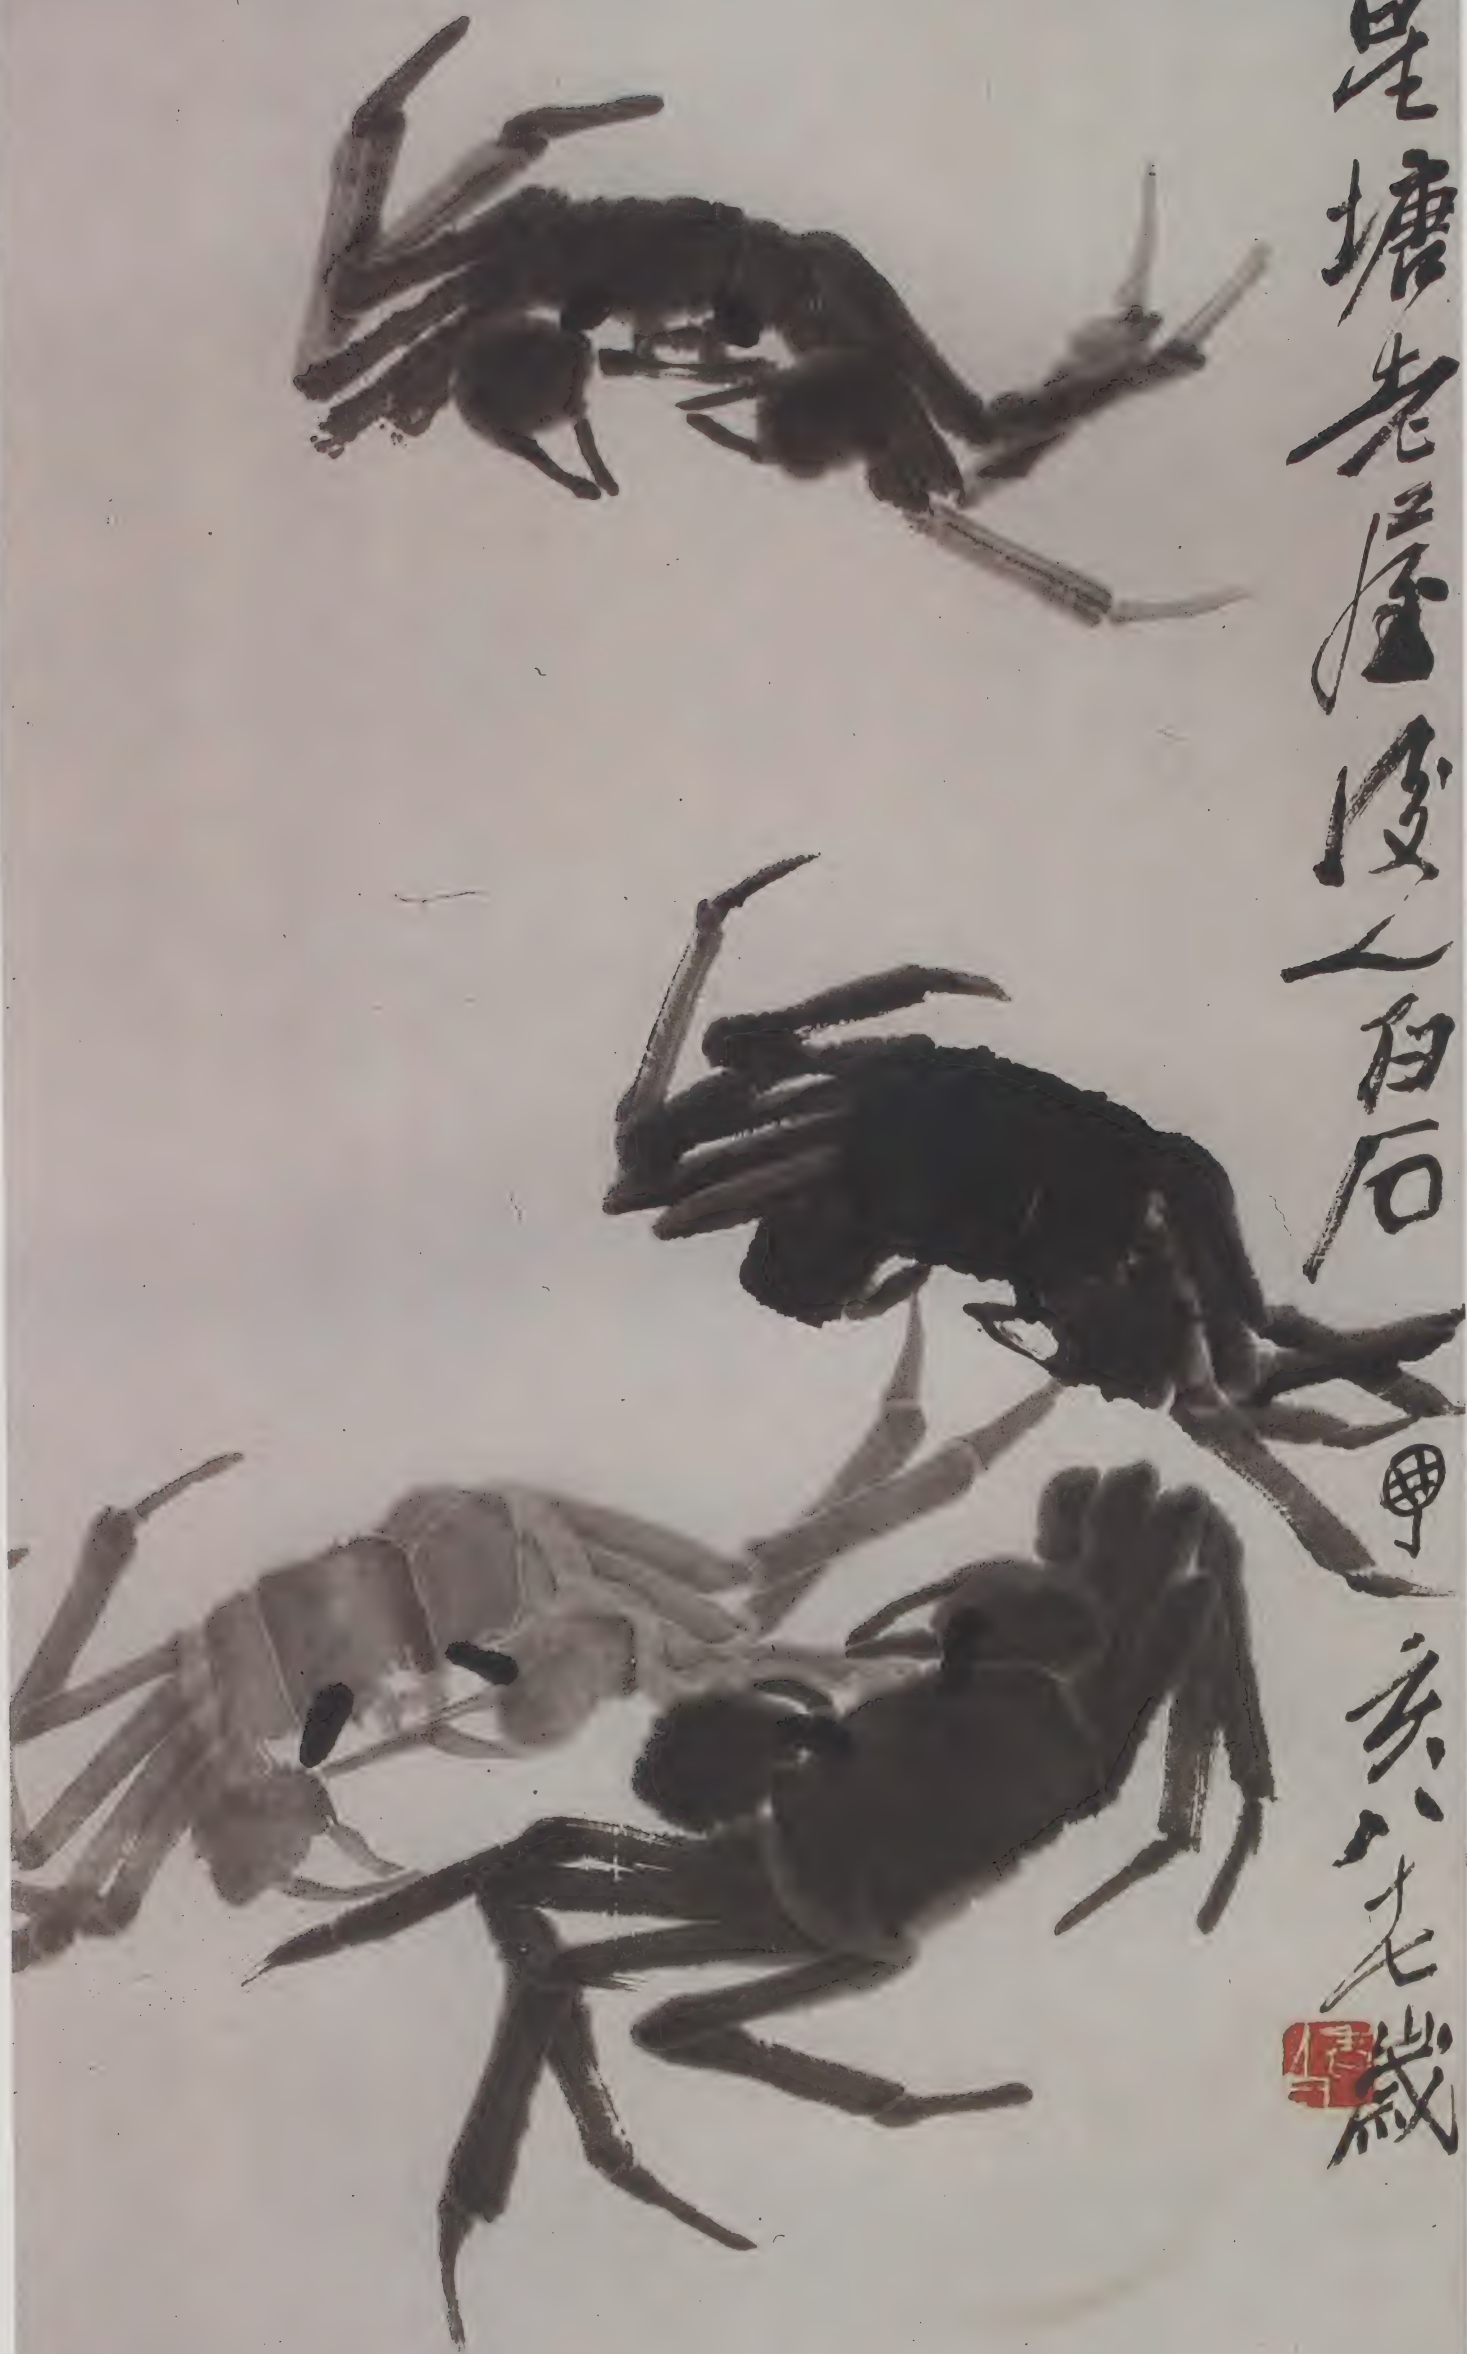 星塘老屋後人白石甲亥八十七歲